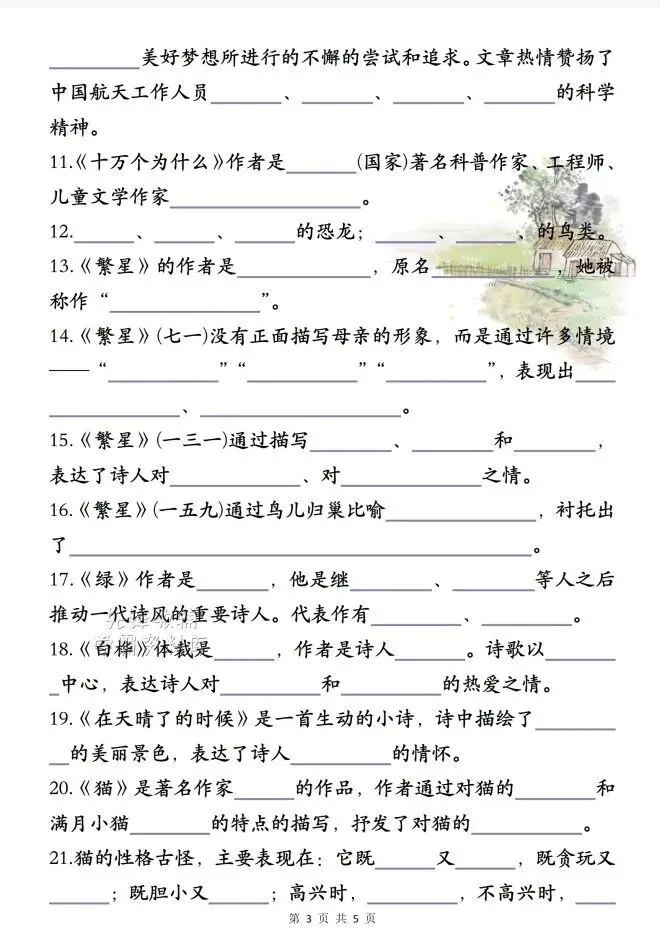 __________美好梦想所进行的不懈的尝试和追求。文章热情赞扬了
中国航天工作人员________、________、________、________的科学
精神。
11.《十万个为什么》作者是________(国家)著名科普作家、工程师、
儿童文学作家____________________。
12.______、______、______的恐龙；______、______、的鸟类。
13.《繁星》的作者是______________，原名____________，她被
称作“________________”。
14.《繁星》(七一)没有正面描写母亲的形象，而是通过许多情境
——“____________”“____________”“___________”，表现出____
______________、_____________________。
15.《繁星》(一三一)通过描写_________、_________和_________，
表达了诗人对______________、对_______________之情。
16.《繁星》(一五九)通过鸟儿归巢比喻________________，衬托出
了__________________________________________________。
17.《绿》作者是________，他是继_________、_________等人之后
推动一代诗风的重要诗人。代表作有__________、__________。
18.《白桦》体裁是______，作者是诗人_______。诗歌以________
_中心，表达诗人对___________和___________的热爱之情。
19.《在天晴了的时候》是一首生动的小诗，诗中描绘了_________
__的美丽景色，表达了诗人___________的情怀。
20.《猫》是著名作家______的作品，作者通过对猫的_________和
满月小猫_________的特点的描写，抒发了对猫的____________。
21.猫的性格古怪，主要表现在：它既______又______，既贪玩又
______；既胆小又______；高兴时，_________，不高兴时，____
第 3 页 共 5 页